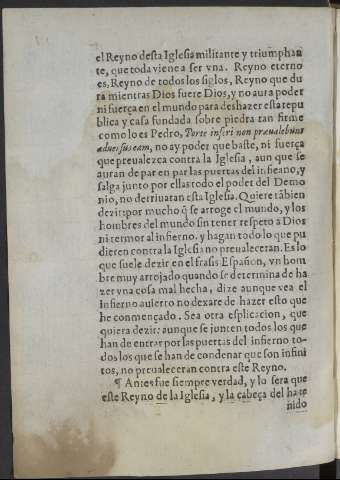 el Reyno desta Iglesia militante y triumphan
te, que toda viene a ser vna. Reyno eterno
es, Reyno de todos los siglos, Reyno que du
ra mientras Dios fuere Dios, y no aura poder
ni fuerça en el mundo para deshazer esta repu
blica y casa fundada sobre piedra tan firme
como lo es Pedro, Portę inferi non præualebunt
aduersus eam, no ay poder que baste, ni fuerça
que preualezca contra la Iglesia, aun que se
auran de par en par las puertas del infieano, y
salga junto por ellas todo el poder del Demo
nio, no derriuaran esta Iglesia. Quiere tãbien
dezir: por mucho q̃ se arroge el mundo, y los
hombres del mundo sin tener respeto a Dios
ni termor al infierno, y hagan todo lo que pu
dieren contra la Iglesia no preualeceran. Es lo
que suele dezir en el frasis Español, vn hom
bre muy arrojado quando se determina de ha
zer vna cosa mal hecha, dize aunque vea el
infierno auierto no dexare de hazer esto que
he començado. Sea otra esplicacion, que
quiera dezir: aunque se junten todos los que
han de entrar por las puertas del infierno to-
dos los que se han de condenar que son infini
tos, no preualeceran contra este Reyno.
¶ Antes fue siempre verdad, y lo sera que
este Reyno de la Iglesia, y la cabeça del ha te
nido